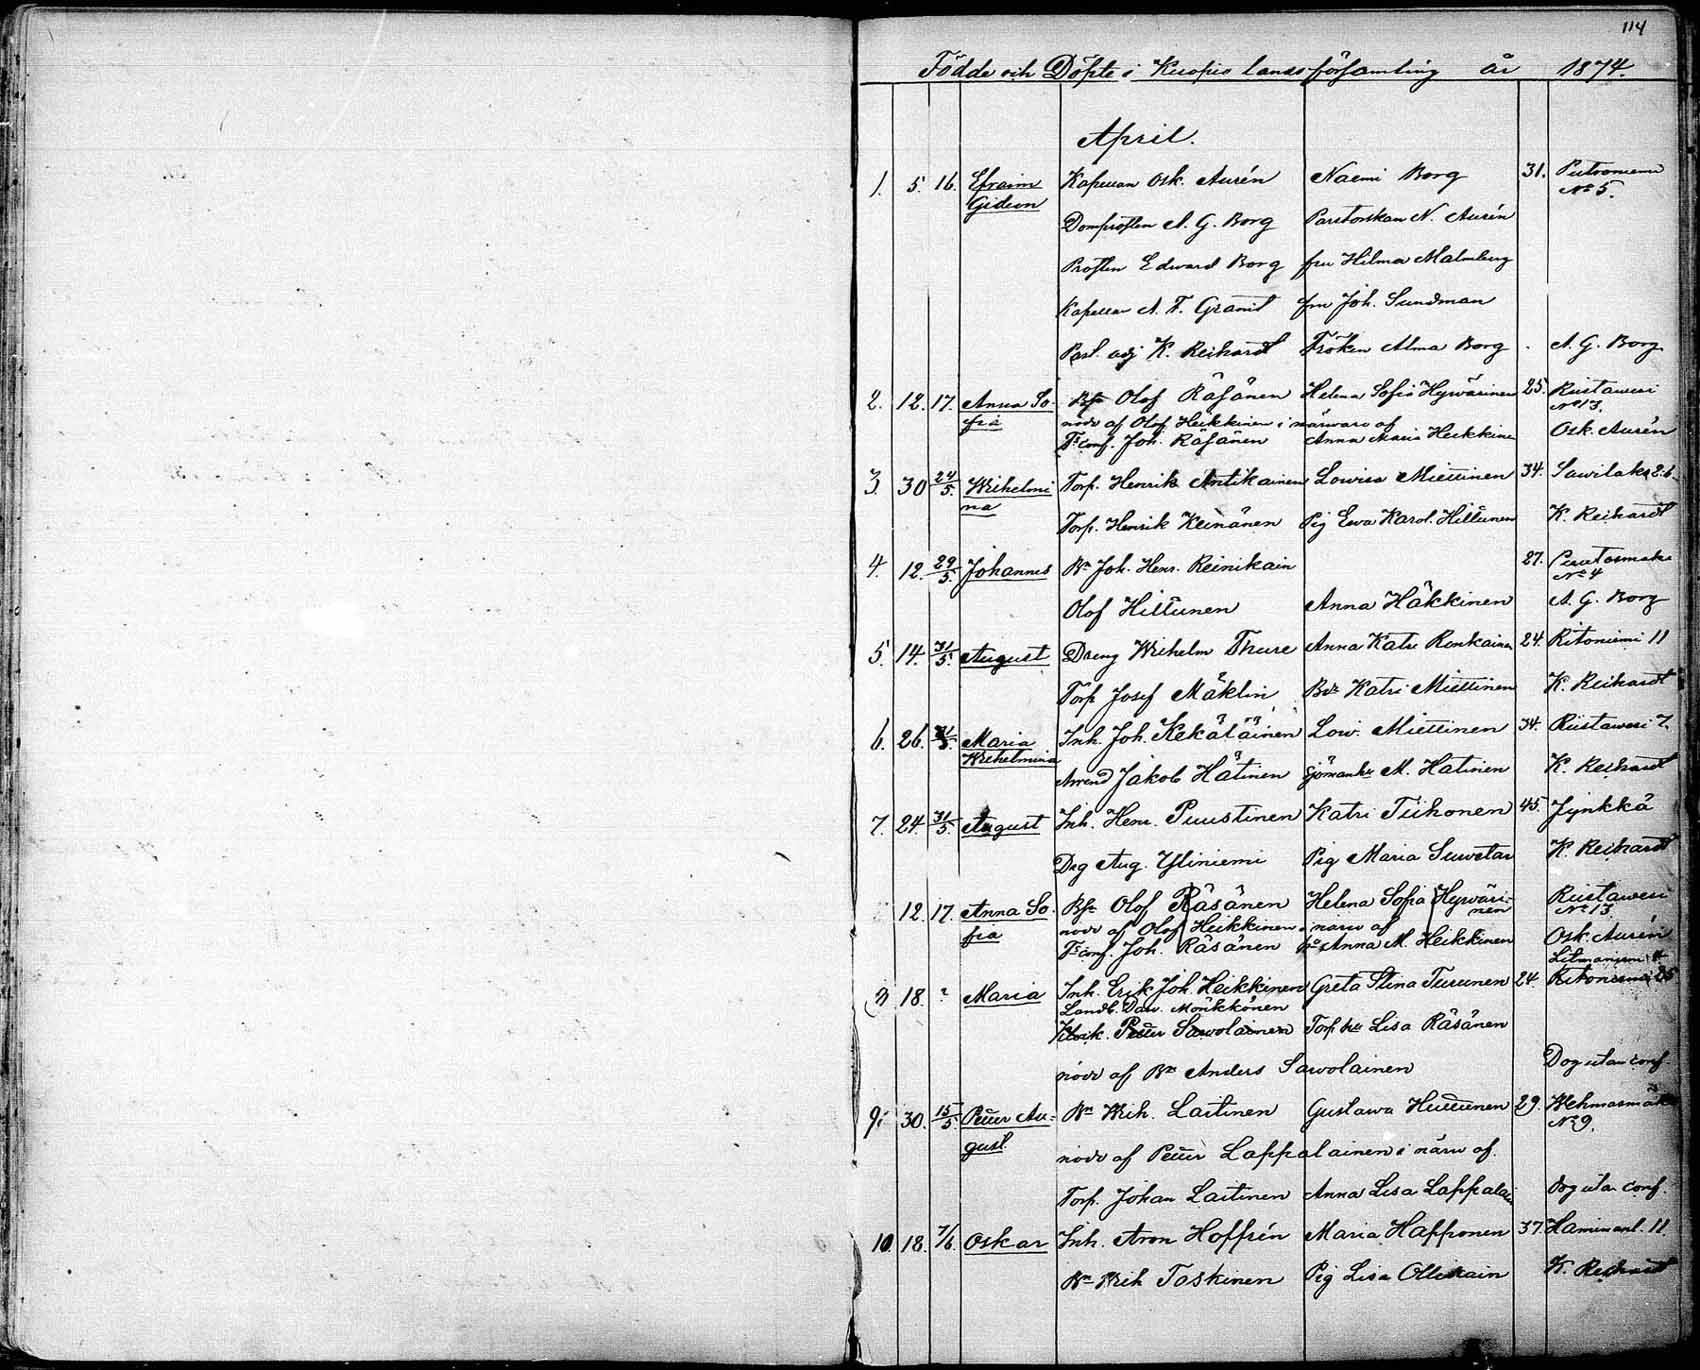 114
Födde och Döpte i Kuopio landsförsamling år 1874.
April.
1. 5. 16. Efraim Kapellan Osk. Aurén Naemi Borg 31. Putroniemi
Gideon No 5.
Domprosten A. G. Borg Pastorskan N. Aurén
Prosten Edward Borg fru Hilma Malmberg
Kapellan A. F. Granit fru Joh. Sundman
Past. adj K. Reihardt Fröken Alma Borg A. G. Borg
2. 12. 17. Anna So- Bsr Olof Räsänen Helena Sofia Hyvärinen 25. Riistavesi
fia nödr af Olof Heikkinen i närvaro af No 13.
F. conf. Joh. Räsänen Anna Maria Heikkinen Osk. Aurén
3. 30 24/5. Wilhelmi Torp. Henrik Antikainen Lovisa Miettinen 34. Savilaks 2:6.
na
Torp. Henrik Keinänen Pig Eva Karol. Hiltunen K. Reihardt
4. 12. 29/5. Johannes Bn Joh. Henr. Reinikain 27. Puutosmäki
No 4
Olof Hiltunen Anna Häkkinen A. G. Borg
5. 14. 31/5. August Dreng Wilhelm Thure Anna Katri Ronkainen 24. Ritoniemi 11
Torp Josef Mäklin Bdr Katri Miettinen K. Reihardt
6. 26. 31/5. Maria Inh. Joh. Kekäläinen Lov. Miettinen 34. Riistavesi 7.
Wilhelmina
Arrend Jakob Hätinen M. Hätinen K. Reihardt
7. 24. 31/5. August Inh. Henr. Puustinen Katri Tiihonen 45. Jynkkä
Drg Aug. Yliniemi Pig Maria Suvetar K. Reihardt
12. 17. Anna So- Bsr Olof Räsänen Helena Sofia Hyväri- Riistavesi
nen No 13
fia nödr af Olof Heikkinen i närv af
F. conf. Joh. Räsänen Anna M. Heikkinen Osk. Aurén
Litmaniemi 4
18. ? Maria Inh. Erik Joh. Heikkinen Greta Stina Turunen 24. Ritoniemi 25
Landb. Dav. Mönkkönen
Petter Savolainen Torp hu Lisa Räsänen
nödr af Bn Anders Savolainen Dog utan conf.
9. 30. 15/5. Petter Au- Bn Wilh. Laitinen Gustava Huttunen 29. Wehmasmäki
gust. No 9.
nödr af Petter Lappalainen i närv af.
Torp. Johan Laitinen Anna Lisa Lappalain dog utan conf.
10. 18. 7/6. Oskar Inh. Aron Hoffrén Maria Happonen 37. Haminanl. 11
Bn Wilh Toskinen Pig Lisa Ollikain K. Reihardt